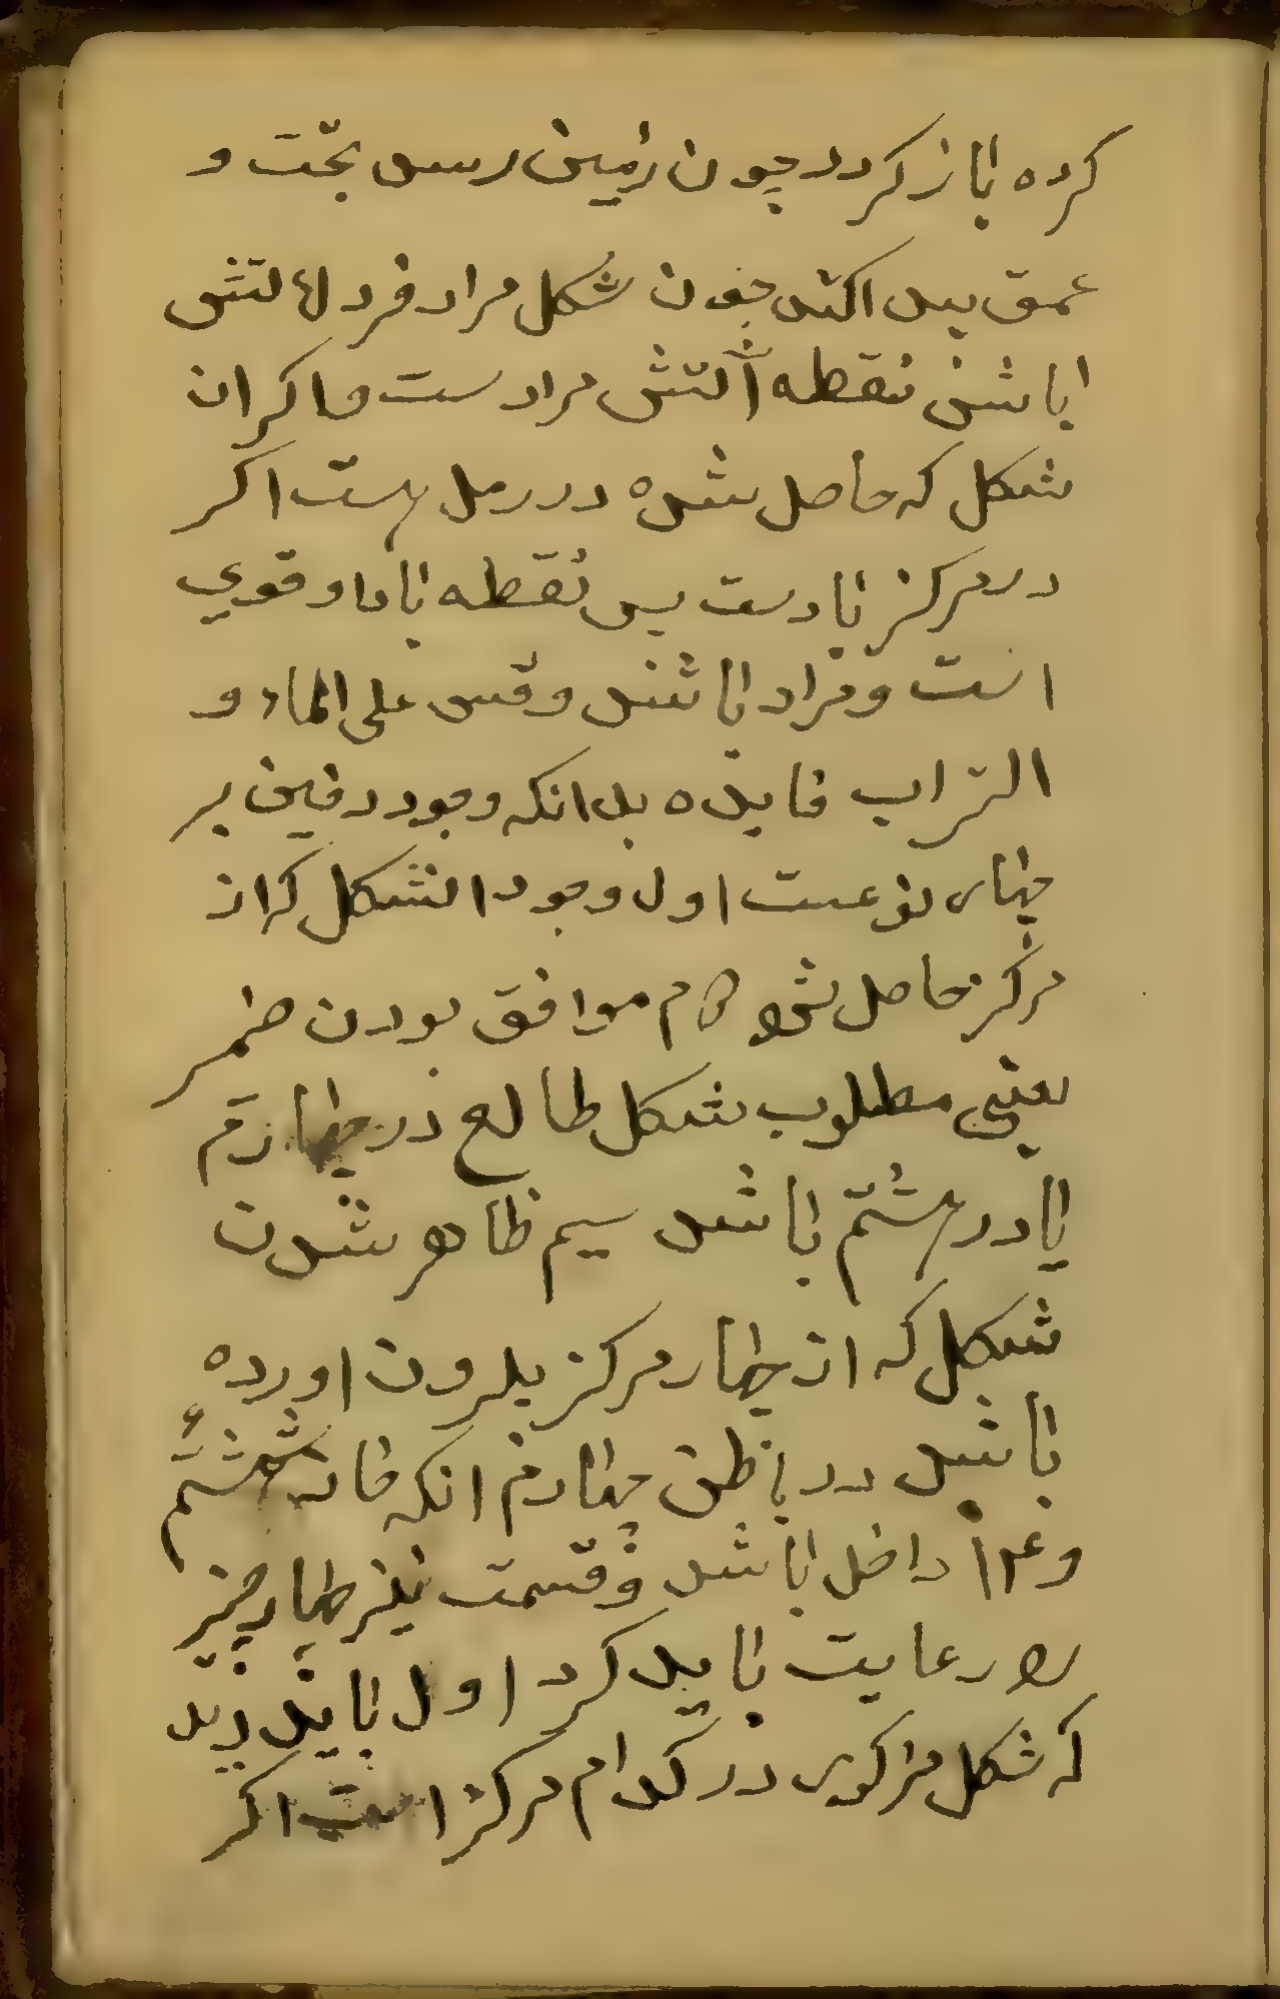 کرده باز کردد چون بزمین رسد بخت و
عمق پیدا کند چون شکل مراد فرد
باشد نقطه آتش مرادست و اکر ان
شکل که حاصل شده در رمل هست اکر
در مرکز بادست پس نقطه باد او قوي
است و مراد باشد وقس علی الماء و
التراب فایده بدانکه وجود دفین بر
چهار نوعست اول وجود الشکل که از
مرکز حاصل شود دوم موافق بودن ضمر
یعنی مطلوب شکل طالع در چهارم
یا در هشتم باشد سیم ظاهر شدن
شکل که از چهار مرکز بیرون اورده
باشد در باطن چهارم انکه خانه هشتم
و ۱۴ داخل باشد و قسمت نیز چهار چیز
را رعایت باید کرد اول باید دید
که شکل مذکور در کدام مرکز است اکر